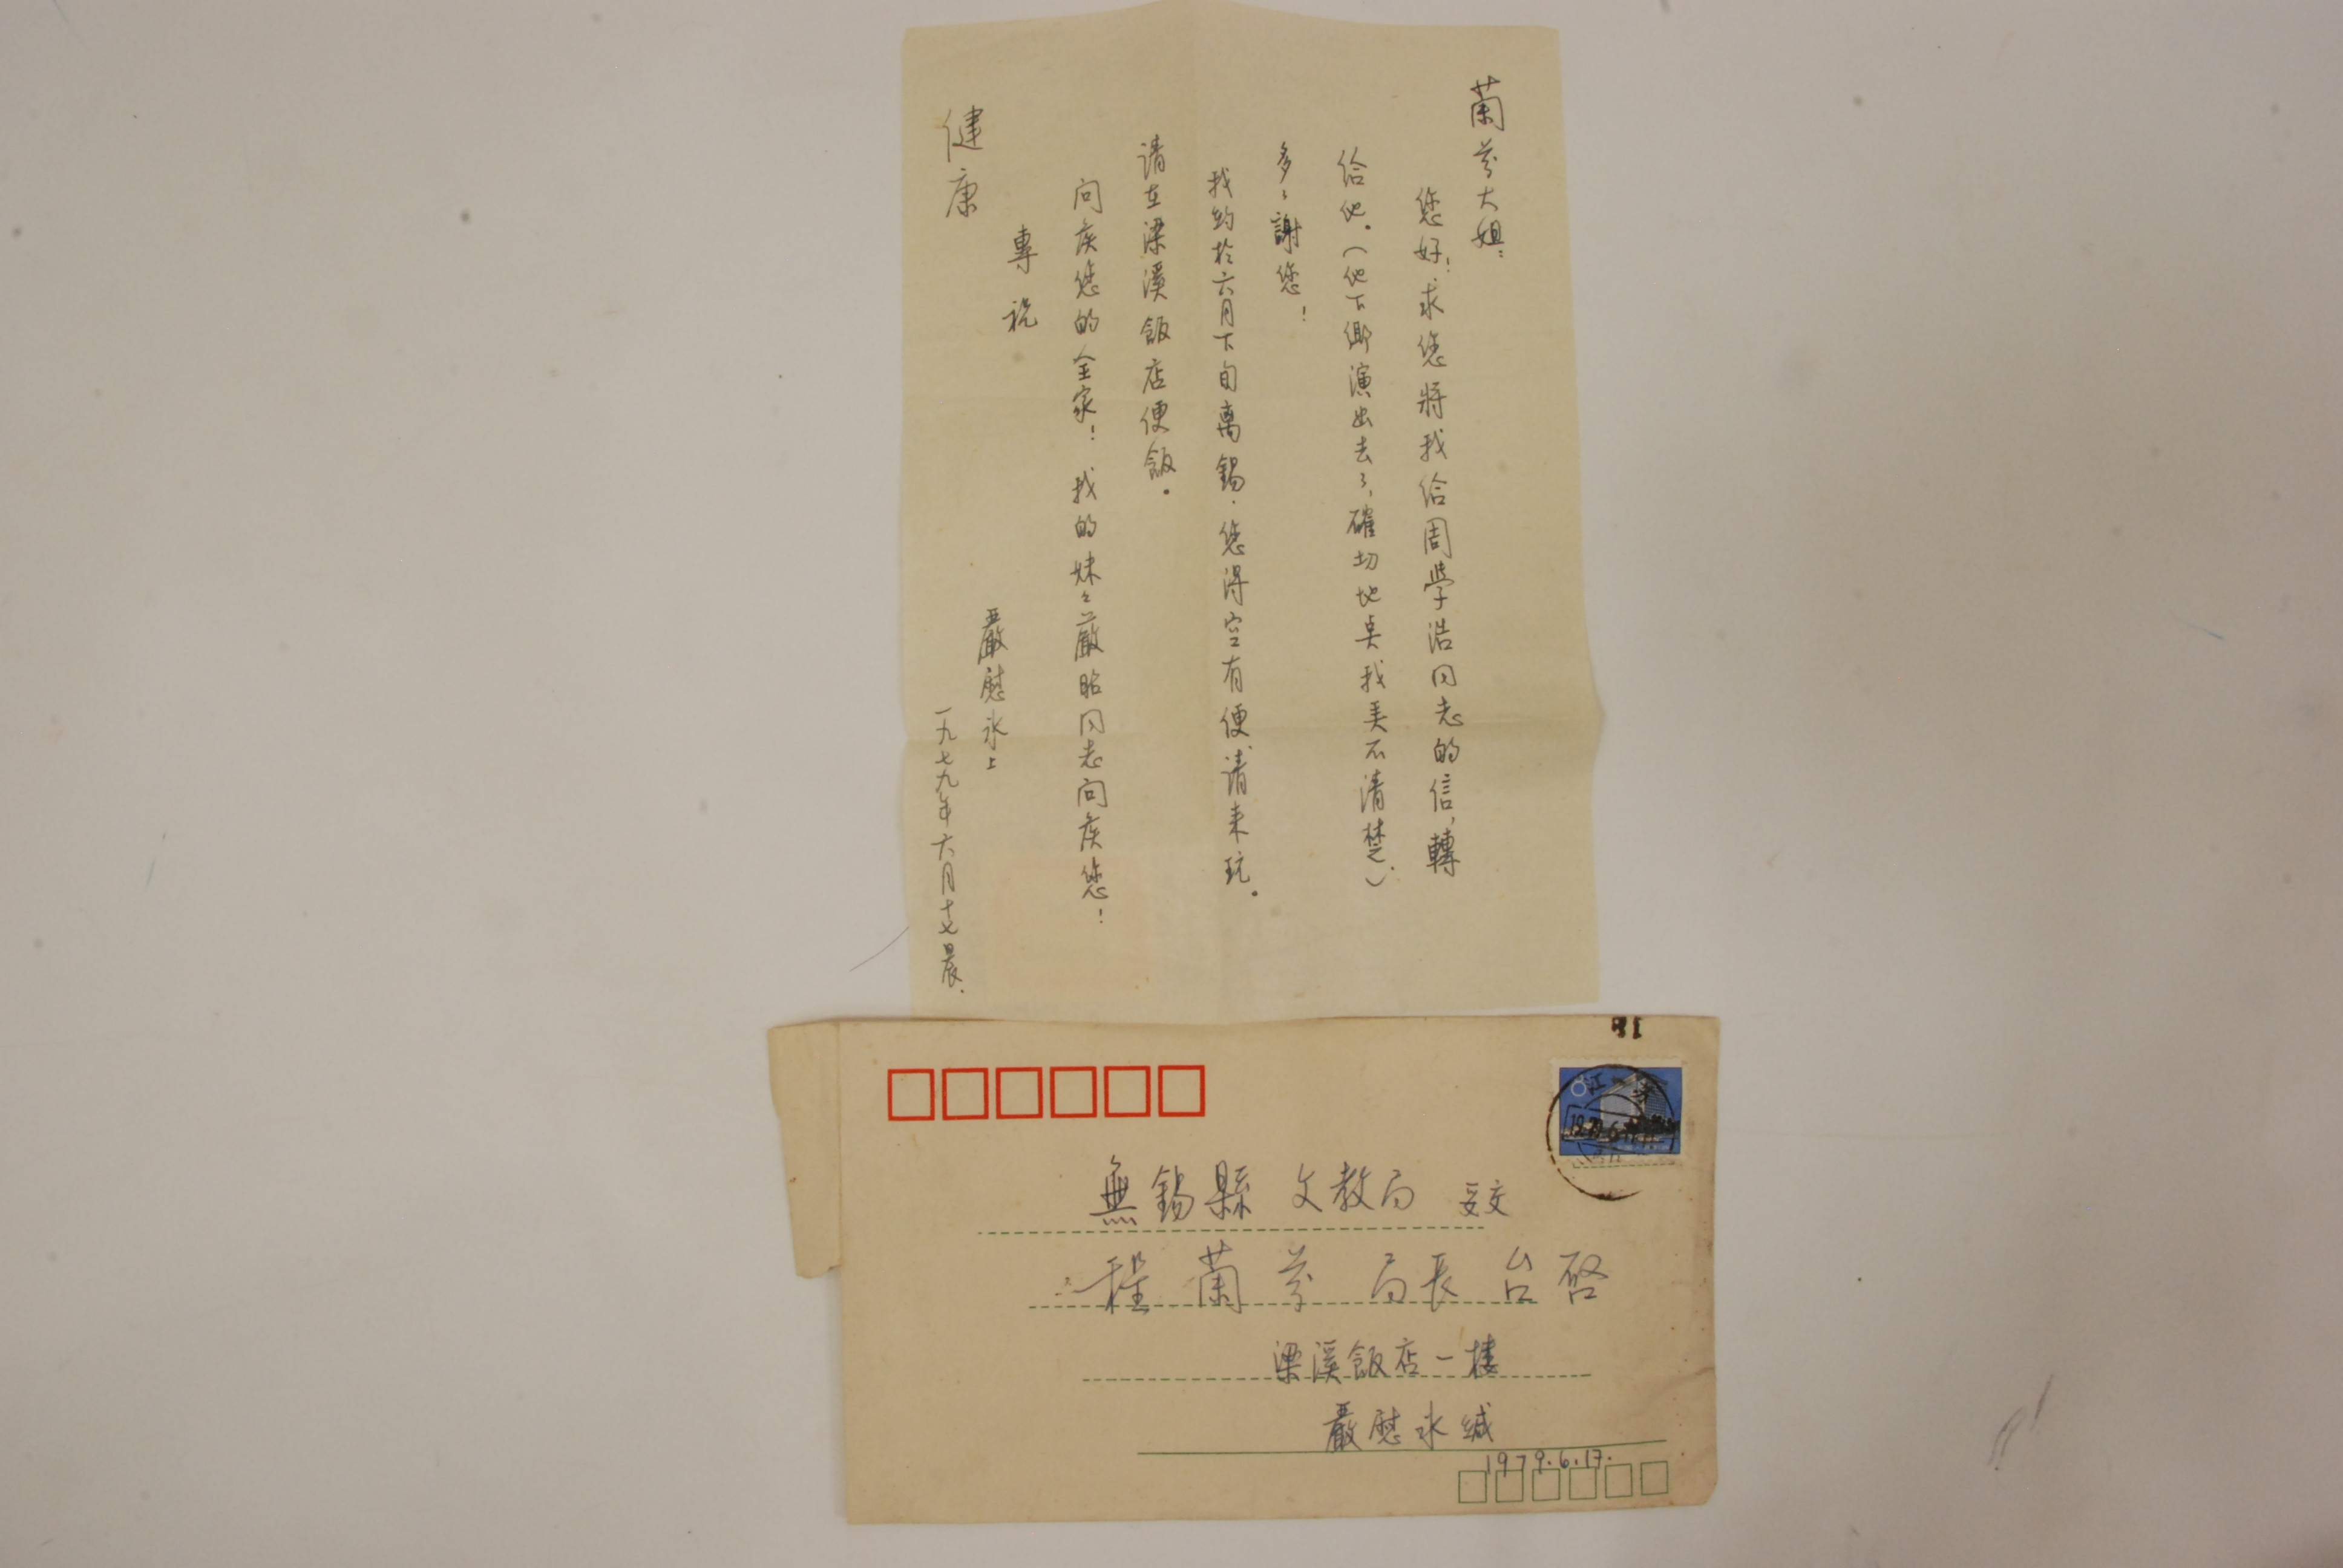 蘭芬大姐：
您好！求您將我給周學浩同志的信，轉
給他。（他下鄉演出去了，確切地点我弄不清楚。）
多々謝您！
我約於六月下旬离錫．您得空有便請来玩。
请在梁溪飯店便飯。
问候您的全家！我的妹々嚴昭同志向候您！
專祝
健康
嚴慰冰上
一九七九年六月十七晨．
8
江
無錫縣 文教局 受交
程蘭芬 局長 台啓
梁溪飯店一樓
嚴慰冰缄
1979.6.17.